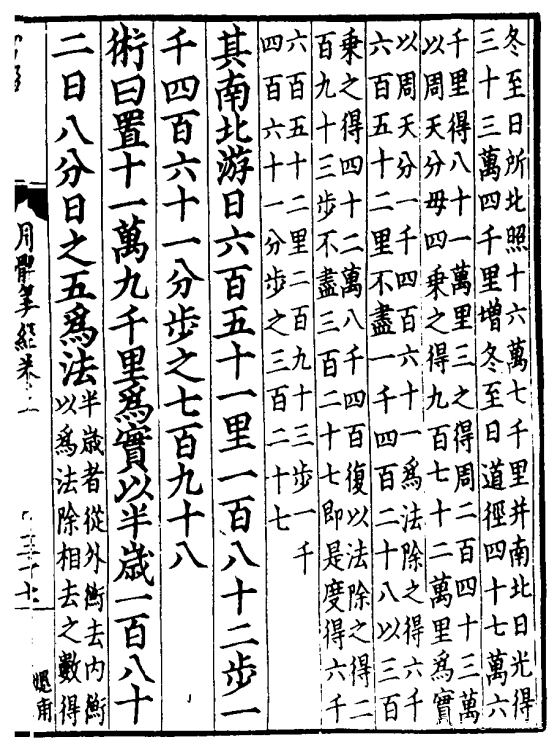 冬至日所北照十六萬七千里并南北日光得
三十三萬四千里增冬至日道徑四十七萬六
千里得八十一萬里三之得周二百四十三萬
以周天分母四乘之得九百七十二萬里爲實
以周天分一千四百六十一爲法除之得六千
六百五十二里不盡一千四百二十八以三百
乘之得四十二萬八千四百復以法除之得二
百九十三步不盡三百二十七即是度得六千
六百五十二里二百九十三步一千
四百六十一分步之三百二十七
其南北游日六百五十一里一百八十二步一
千四百六十一分步之七百九十八
術曰置十一萬九千里爲實以半歲一百八十
二日八分日之五爲法
半歲者從外衡去內衡
以爲法除相去之數得
周髀算經卷